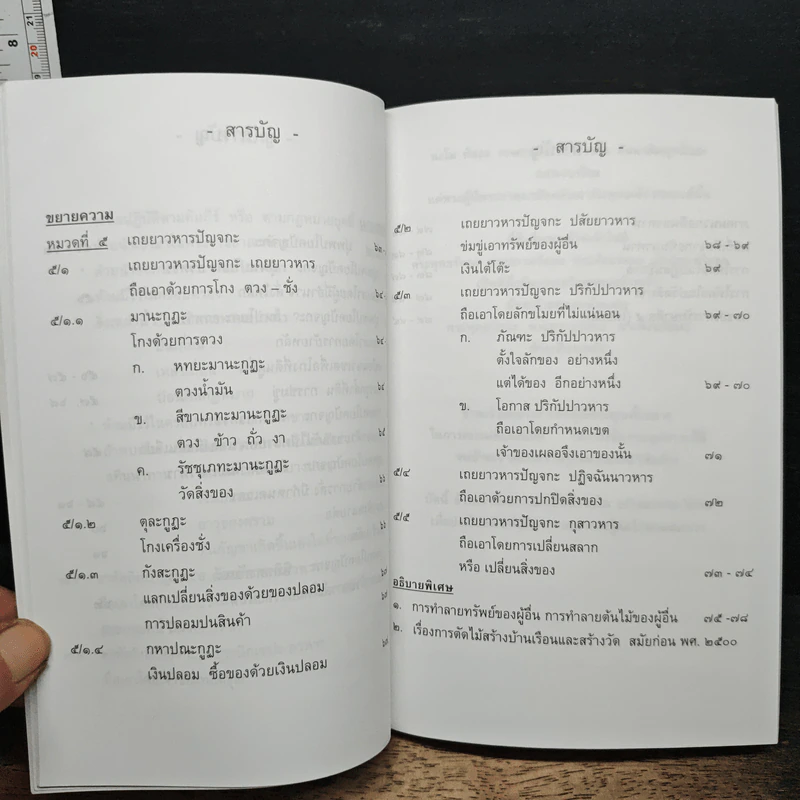 - สารบัญ -
ขยายความ
หมวดที่ ๕ เถยยาวหารปัญจกะ
๕/๑ เถยยาวหารปัญจกะ เถยยาวหาร
ถือเอาด้วยการโกง ตวง – ชั่ง ๖๔
๕/๑.๑ มานะกูฏะ
โกงด้วยการตวง ๖๔
ก. หทยะมานะกูฏะ
ตวงน้ำมัน ๖๔
ข. สีขาเภทะมานะกูฏะ
ตวง ข้าว ถั่ว งา ๖๔
ค. รัชชุเภทะมานะกูฏะ
วัดสิ่งของ
๕/๑.๒ ตุละกูฏะ
โกงเครื่องชั่ง
๕/๑.๓ กังสะกูฏะ
แลกเปลี่ยนสิ่งของด้วยของปลอม
การปลอมปนสินค้า
๕/๑.๔ กหาปณะกูฏะ
เงินปลอม ซื้อของด้วยเงินปลอม
- สารบัญ -
๕/๒ เถยยาวหารปัญจกะ ปสัยยาวหาร
ข่มขู่เอาทรัพย์ของผู้อื่น ๖๘ - ๖๙
เงินใต้โต๊ะ ๖๙
๕/๓ เถยยาวหารปัญจกะ ปริกัปปาวหาร
ถือเอาโดยลักขโมยที่ไม่แน่นอน ๖๙ - ๗๐
ก. ภัณฑะ ปริกัปปาวหาร
ตั้งใจลักของ อย่างหนึ่ง
แต่ได้ของ อีกอย่างหนึ่ง ๖๙ - ๗๐
ข. โอกาส ปริกัปปาวหาร
ถือเอาโดยกำหนดเขต
เจ้าของเผลอจึงเอาของนั้น ๗๑
๕/๔ เถยยาวหารปัญจกะ ปฏิจฉันนาวหาร
ถือเอาด้วยการปกปิดสิ่งของ ๗๒
๕/๕ เถยยาวหารปัญจกะ กุสาวหาร
ถือเอาโดยการเปลี่ยนสลาก
หรือ เปลี่ยนสิ่งของ ๗๓ - ๗๔
อธิบายพิเศษ
๑. การทำลายทรัพย์ของผู้อื่น การทำลายต้นไม้ของผู้อื่น ๗๕ -๗๘
๒. เรื่องการตัดไม้สร้างบ้านเรือนและสร้างวัด สมัยก่อน พศ. ๒๕๐๐
8
21
20
19